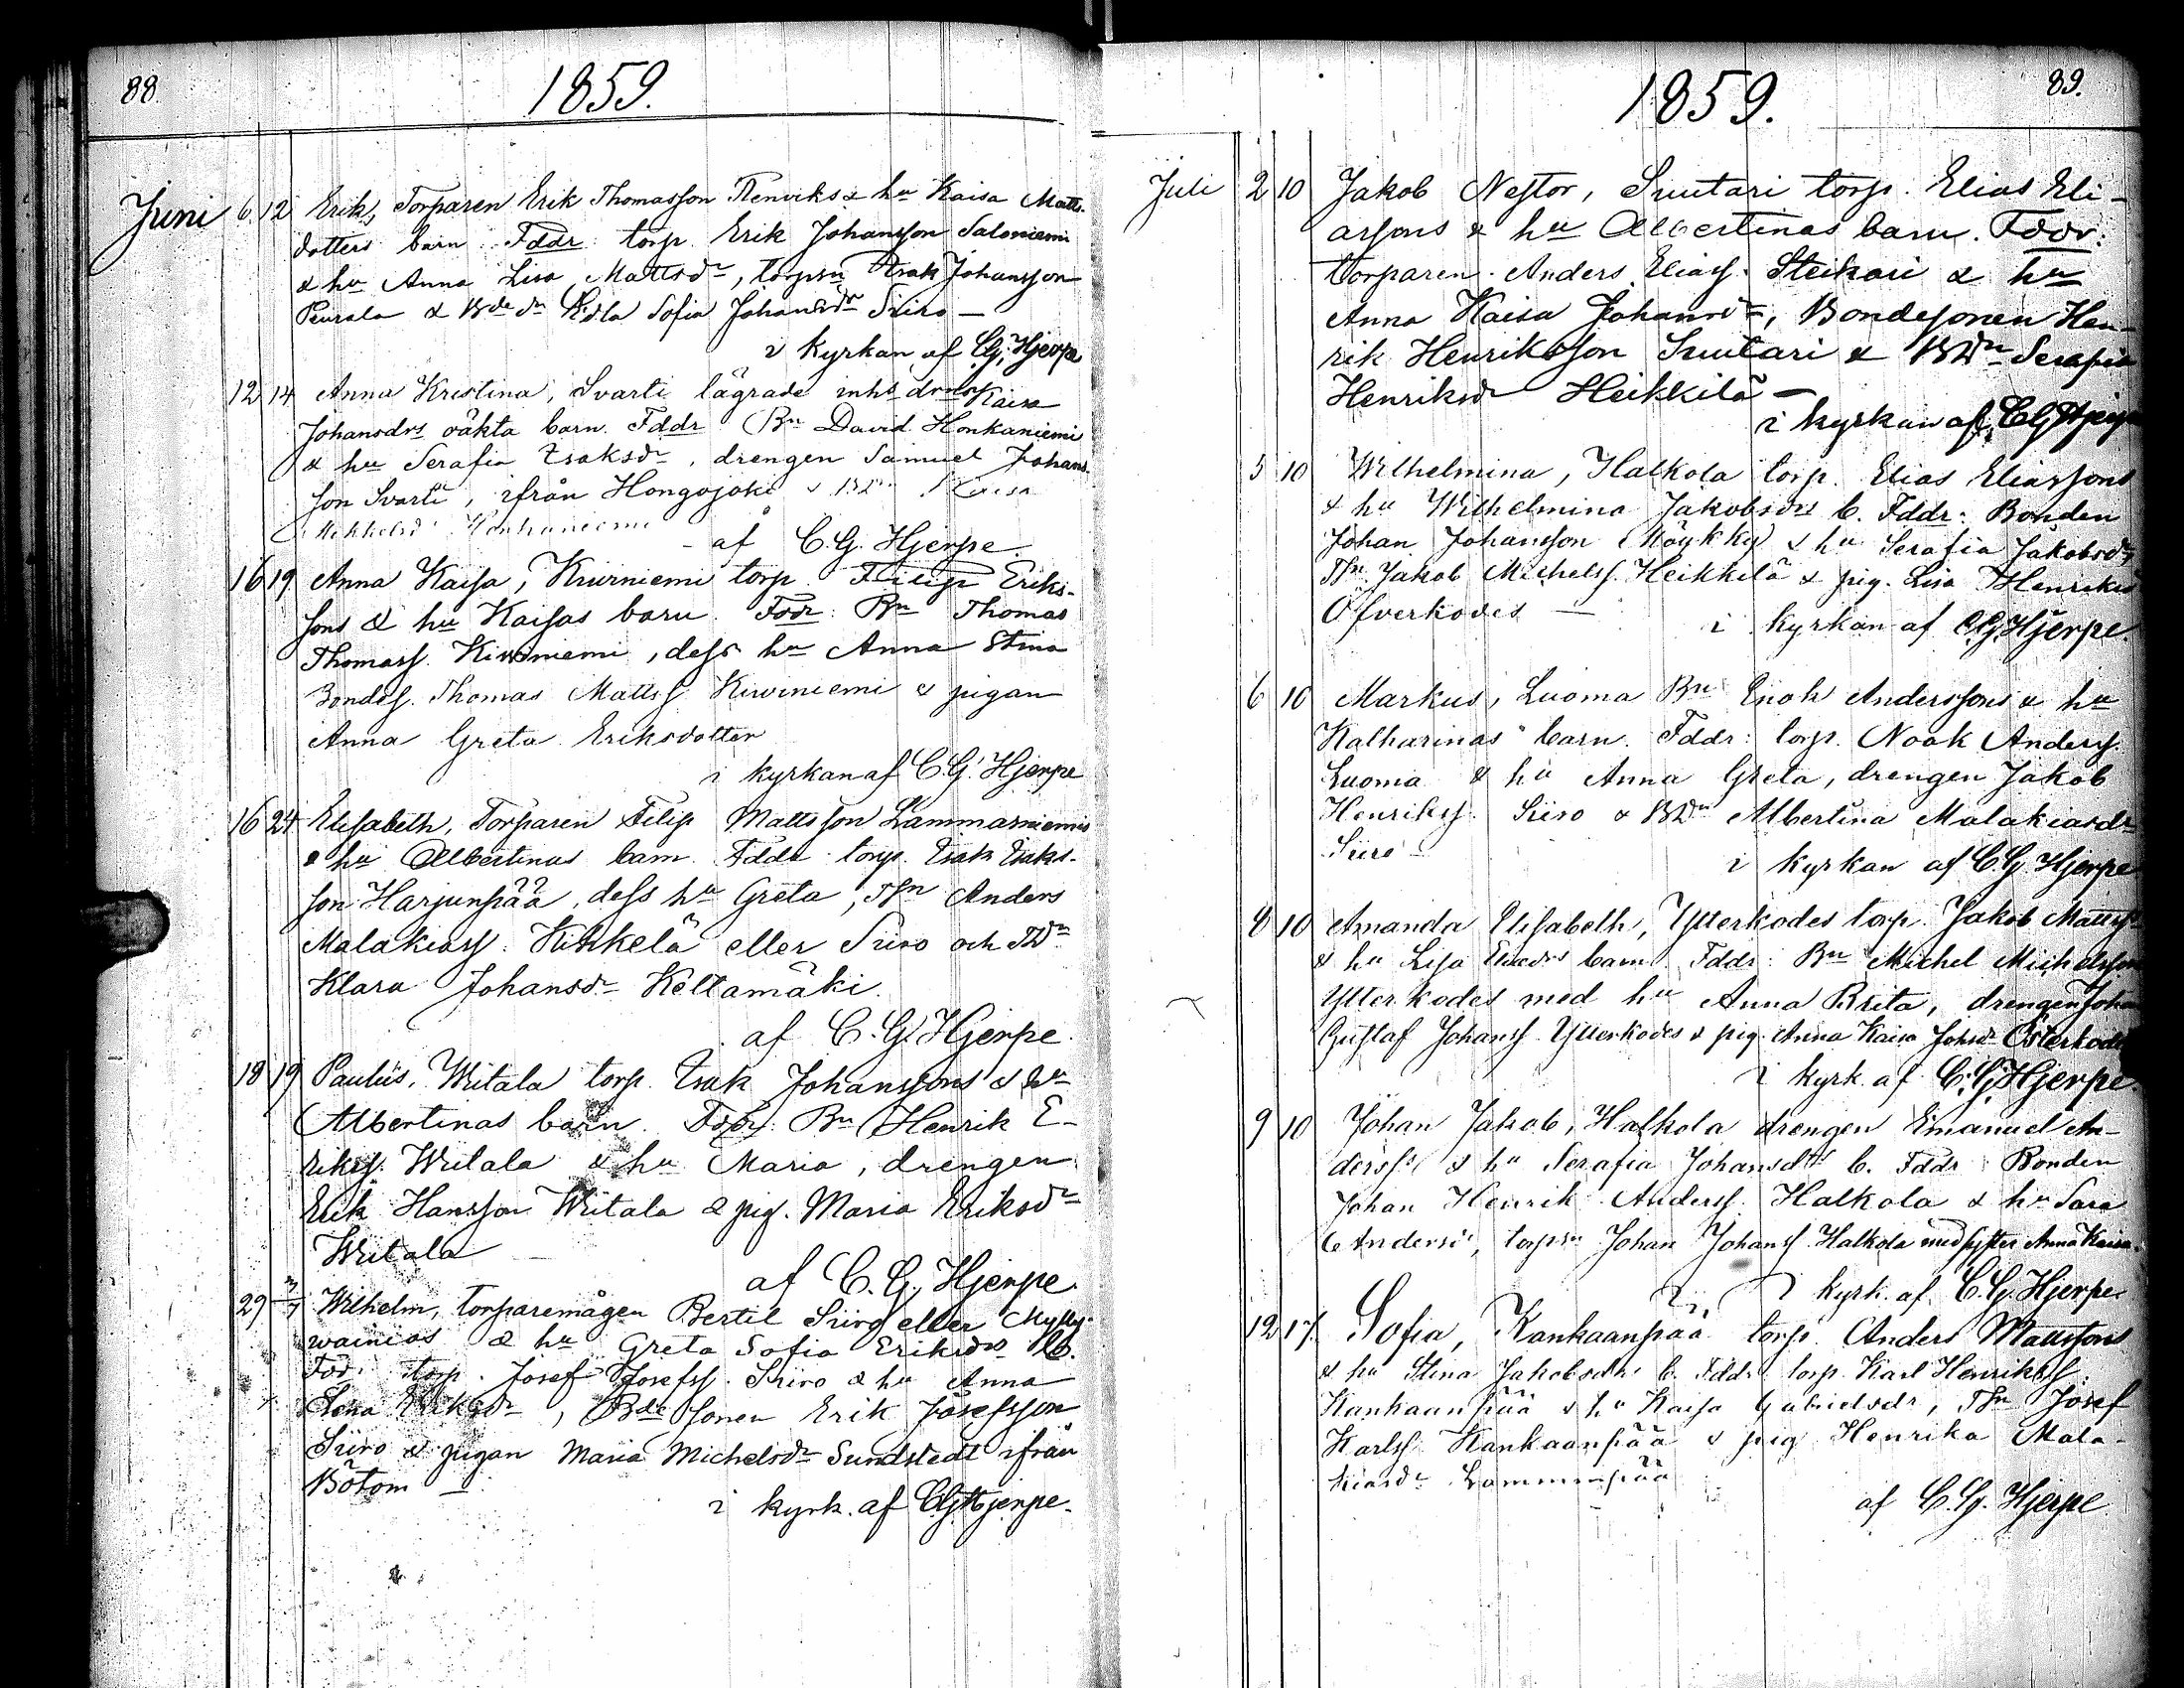 88.
1859.
Juni 6 12 Erik, Torparen Erik Thomasson Renviks & hu Kaisa Matts-
dotters barn Fddr: torp. Erik Johansson Saloniemi
& hu Anna Lisa Mattsdr, torpsn Isak Johansson
Peurala & Bde dr Edla Sofia Johansdr Siiro —
i kyrkan af C.G. Hjerpe
12 14 Anna Kristina, Svarti lägrade inhs Kaisa
Johansdrs oäkta barn. Fddr Bn David Honkaniemi
& hu Serafia Isaksdr, drengen Samuel Johans
son Svarti, ifrån Hongojoki & Kaisa
Mikkelsd Honkaniemi
af C.G. Hjerpe
16 19 Anna Kaisa, Kiviniemi torp. Filip Eriks-
sons & hu Kaisas barn. Fddr: Bn Thomas
Thomass. Kiviniemi, dess hu Anna Stina
Bondes. Thomas Mattss. Kiviniemi & pigan
Anna Greta Eriksdotter
i kyrkan af C.G. Hjerpe
16 24 Elisabeth, Torparen Filip Mattsson Lammasniemis
& hu Albertinas barn Fddr torp. Isak Isaks-
son Harjunpää, dess hu Greta, Tsn Anders
Malakiass. Kikkelä eller Siiro och TDr
Klara Johansdr Keltamäki.
af C.G. Hjerpe.
18 19 Paulus, Wiitala torp. Isak Johanssons & hu
Albertinas barn. Fddr. Bn Henrik E-
rikss. Wiitala & hu Maria, drengen
Erik Hansson Wiitala & pig. Maria Eriksdr
Wiitala
af C.G. Hjerpe
29 3/7 Wilhelm, torparemågen Bertil Siiro eller Mylly-
wainias & hu Greta Sofia Eriksdrs b.
Fdd: torp. Josef Josefss. Siiro & hu Anna
Lena Eriksdr, Bde sonen Erik Josefsson
Siiro & pigan Maria Michelsdr Sundstedt ifrån
Bötom —
i kyrk. af C.G. Hjerpe.
89.
1859.
Juli 2 10 Jakob Nestor, Suutari torp. Elias Eli-
assons & hu Albertinas barn. Fddr:
torparen Anders Eliass. Steikari & hu
Anna Kaisa Johansdr, Bondesonen Hen-
rik Henriksson Suutari & BDr Serafia
Henriksdr Heikkilä —
i kyrkan af C.G. Hjerpe
5 10 Wilhelmina, Halkola torp. Elias Eliassons
& hu Wilhelmina Jakobsdrs b. Fddr: Bonden
Johan Johansson Möykky & hu Serafia Jakobsdr,
Tsn Jakob Michelss. Heikkilä & pig. Lisa Henriksd
Öfverkodes —
i kyrkan af C.G. Hjerpe.
6 10 Markus, Luoma Bn Enok Anderssons & hu
Katharinas barn. Fddr: torp. Noak Anderss.
Luoma & hu Anna Greta, drengen Jakob
Henrikss. Siiro & BDr Albertina Malakiasdr
Siiro —
i kyrkan af C.G. Hjerpe
8 10 Amanda Elisabeth, Ytterkodes torp. Jakob Mattss
& hu Lisa barn Fddr: Bn Michel Michelsson
Ytterkodes med hu Anna Brita, drengen Johan
Gustaf Johanss. Ytterkodes & pig. Anna Kaisa Johsdr Österkodes
i kyrk. af C.G. Hjerpe.
9 10 Johan Jakob, Halkola drengen Emanuel An-
derss & hu Serafia Johansdrs b. Fddr Bonden
Johan Henrik Anderss. Halkola & hu Sara
Andersdr, torpsn Johan Johanss Halkola med syster Anna Kaisa.
i kyrk. af C.G. Hjerpe
12 17. Sofia, Kankaanpää torp. Anders Mattssons
& hu Stina Jakobsdrs b. Fddr torp. Karl Henrikss.
Kankaanpää & hu Kaisa Gabrielsdr, Tsn Josef
Karlss. Kankaanpää & pig Henrika Mala-
kiasdr Lamminpää
af C.G. Hjerpe